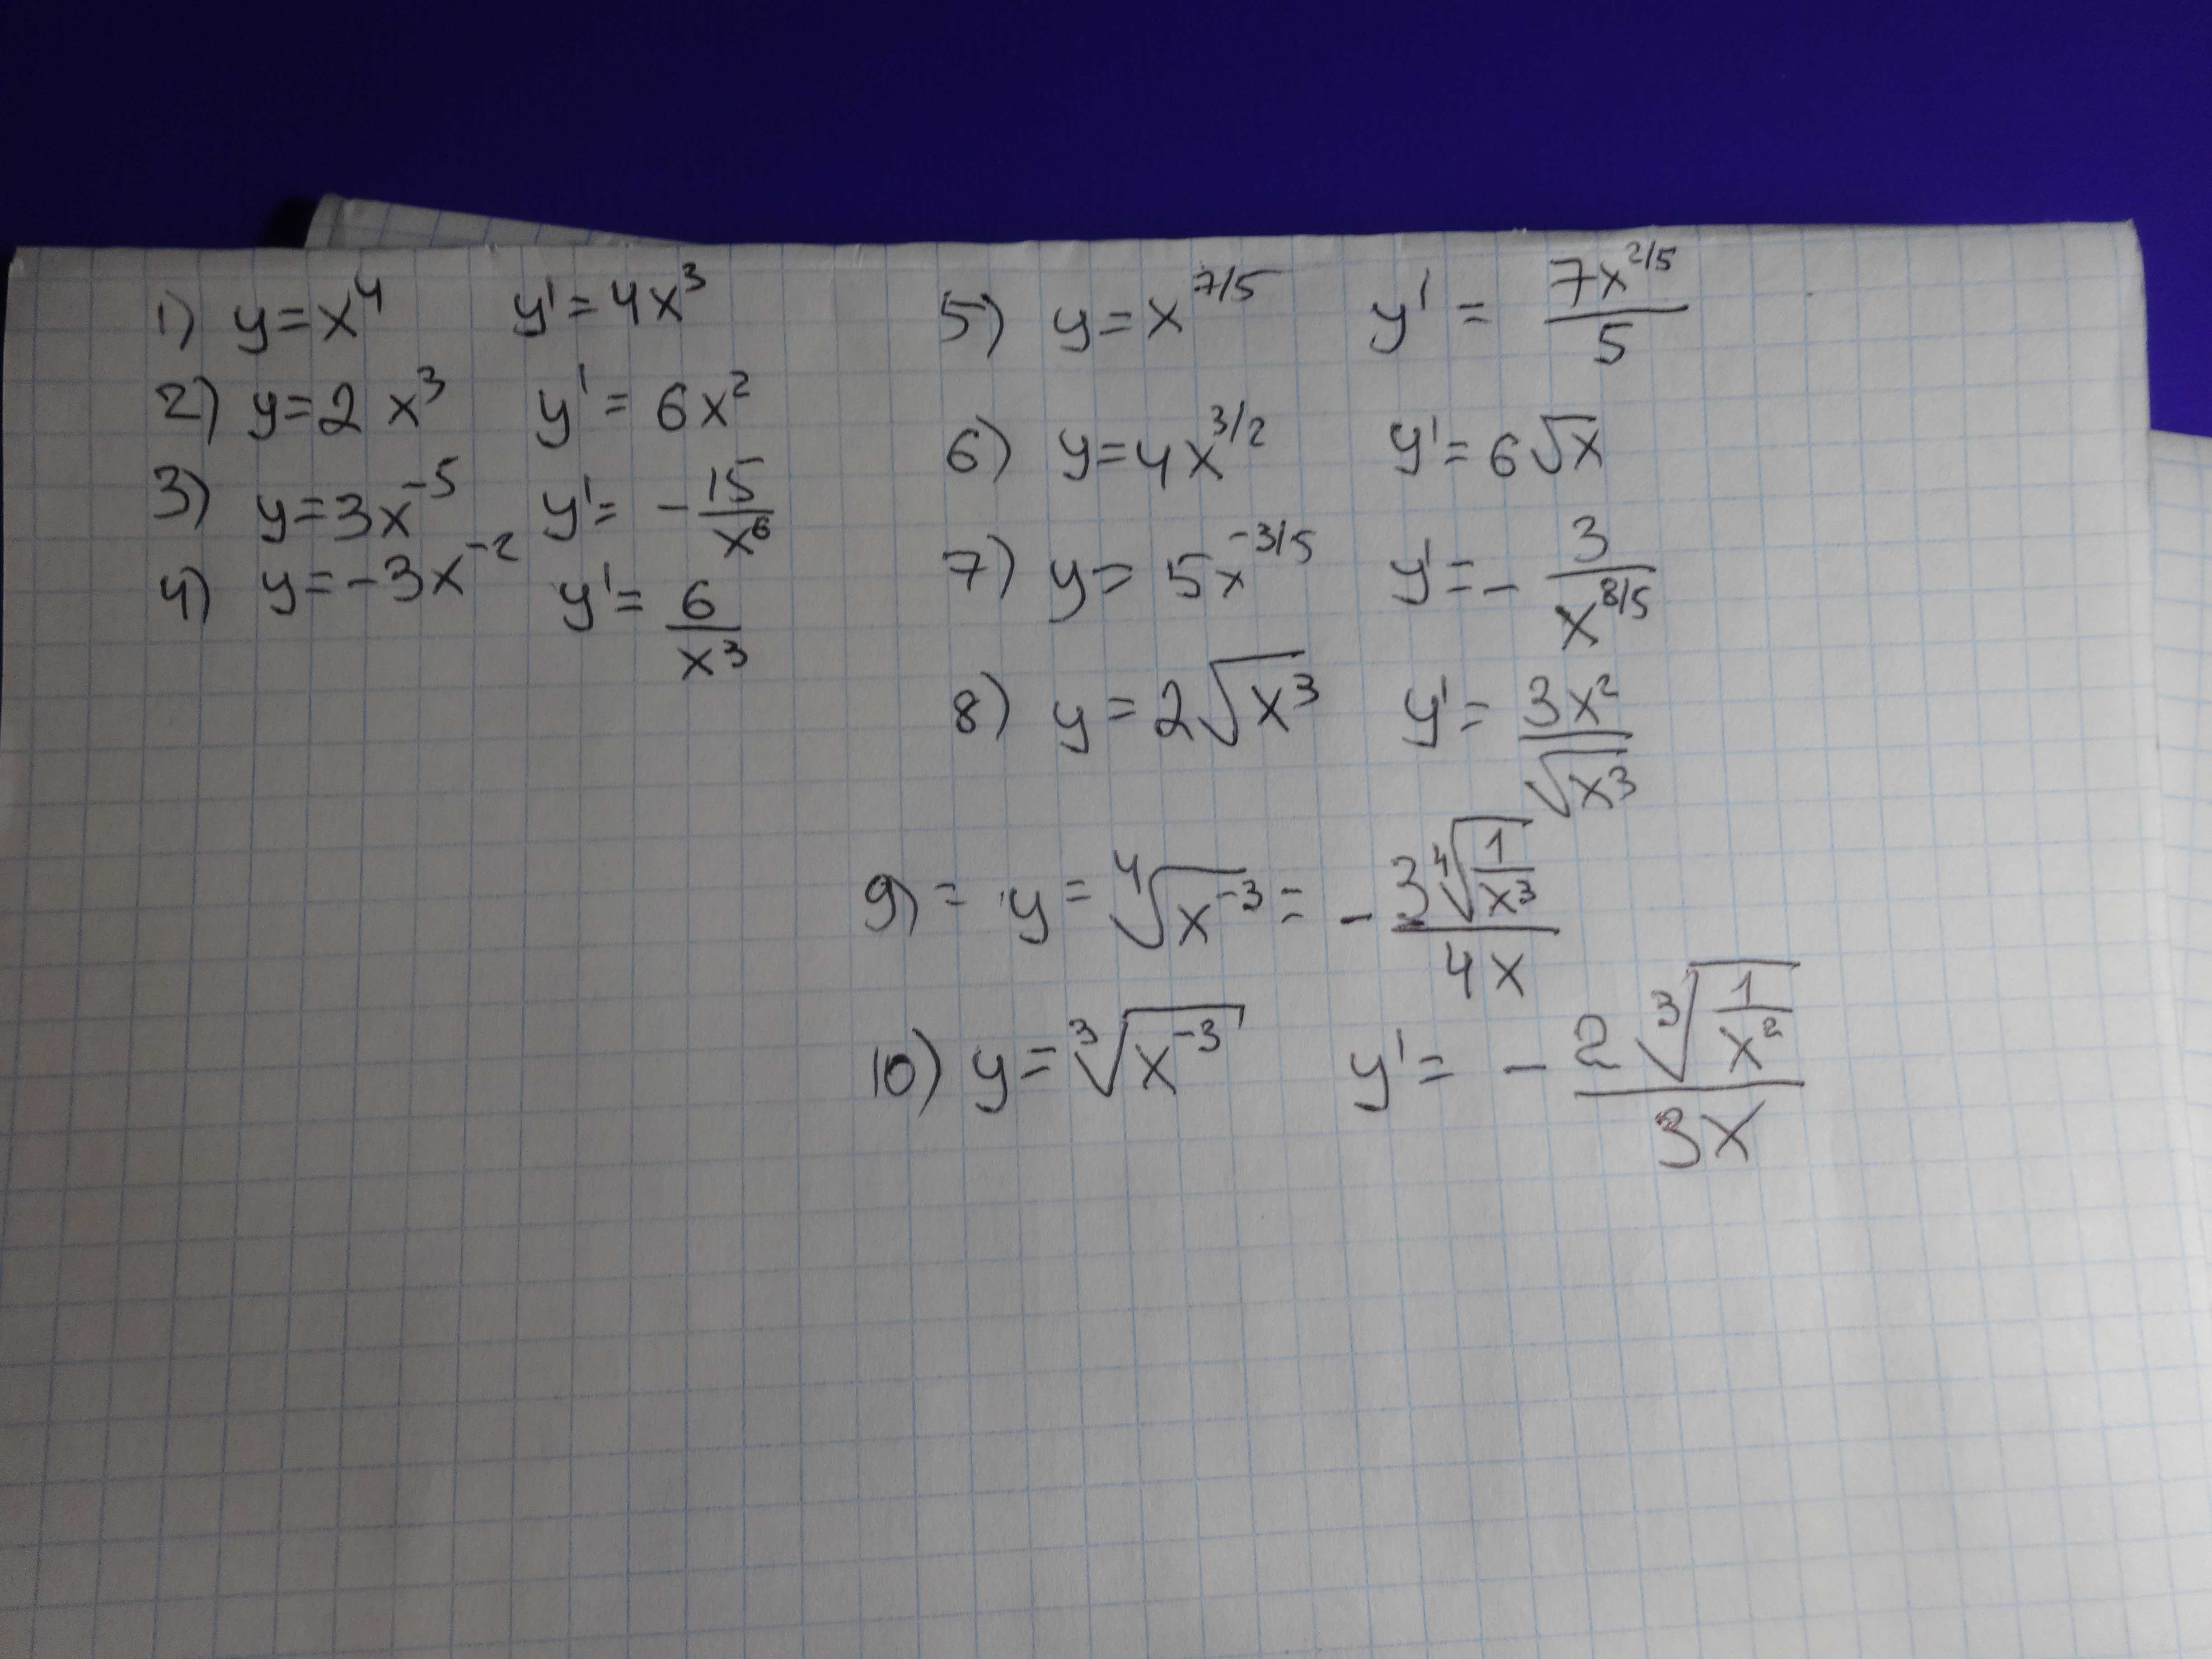 1) y=x⁴ y'=4x³
2) y=2x³ y'=6x²
3) y=3x⁻⁵ y'=-15/x⁶
4) y=-3x⁻² y'=6/x³
5) y=x^(7/5) y'=7x^(2/5)/5
6) y=4x^(3/2) y'=6√x
7) y=5x^(-3/5) y'=-3/x^(8/5)
8) y=2√(x³) y'=3x²/√(x³)
9) = y=⁴√(x⁻³)=-3⁴√(1/x³)/4x
10) y=³√(x⁻³) y'=-2³√(1/x²)/3x